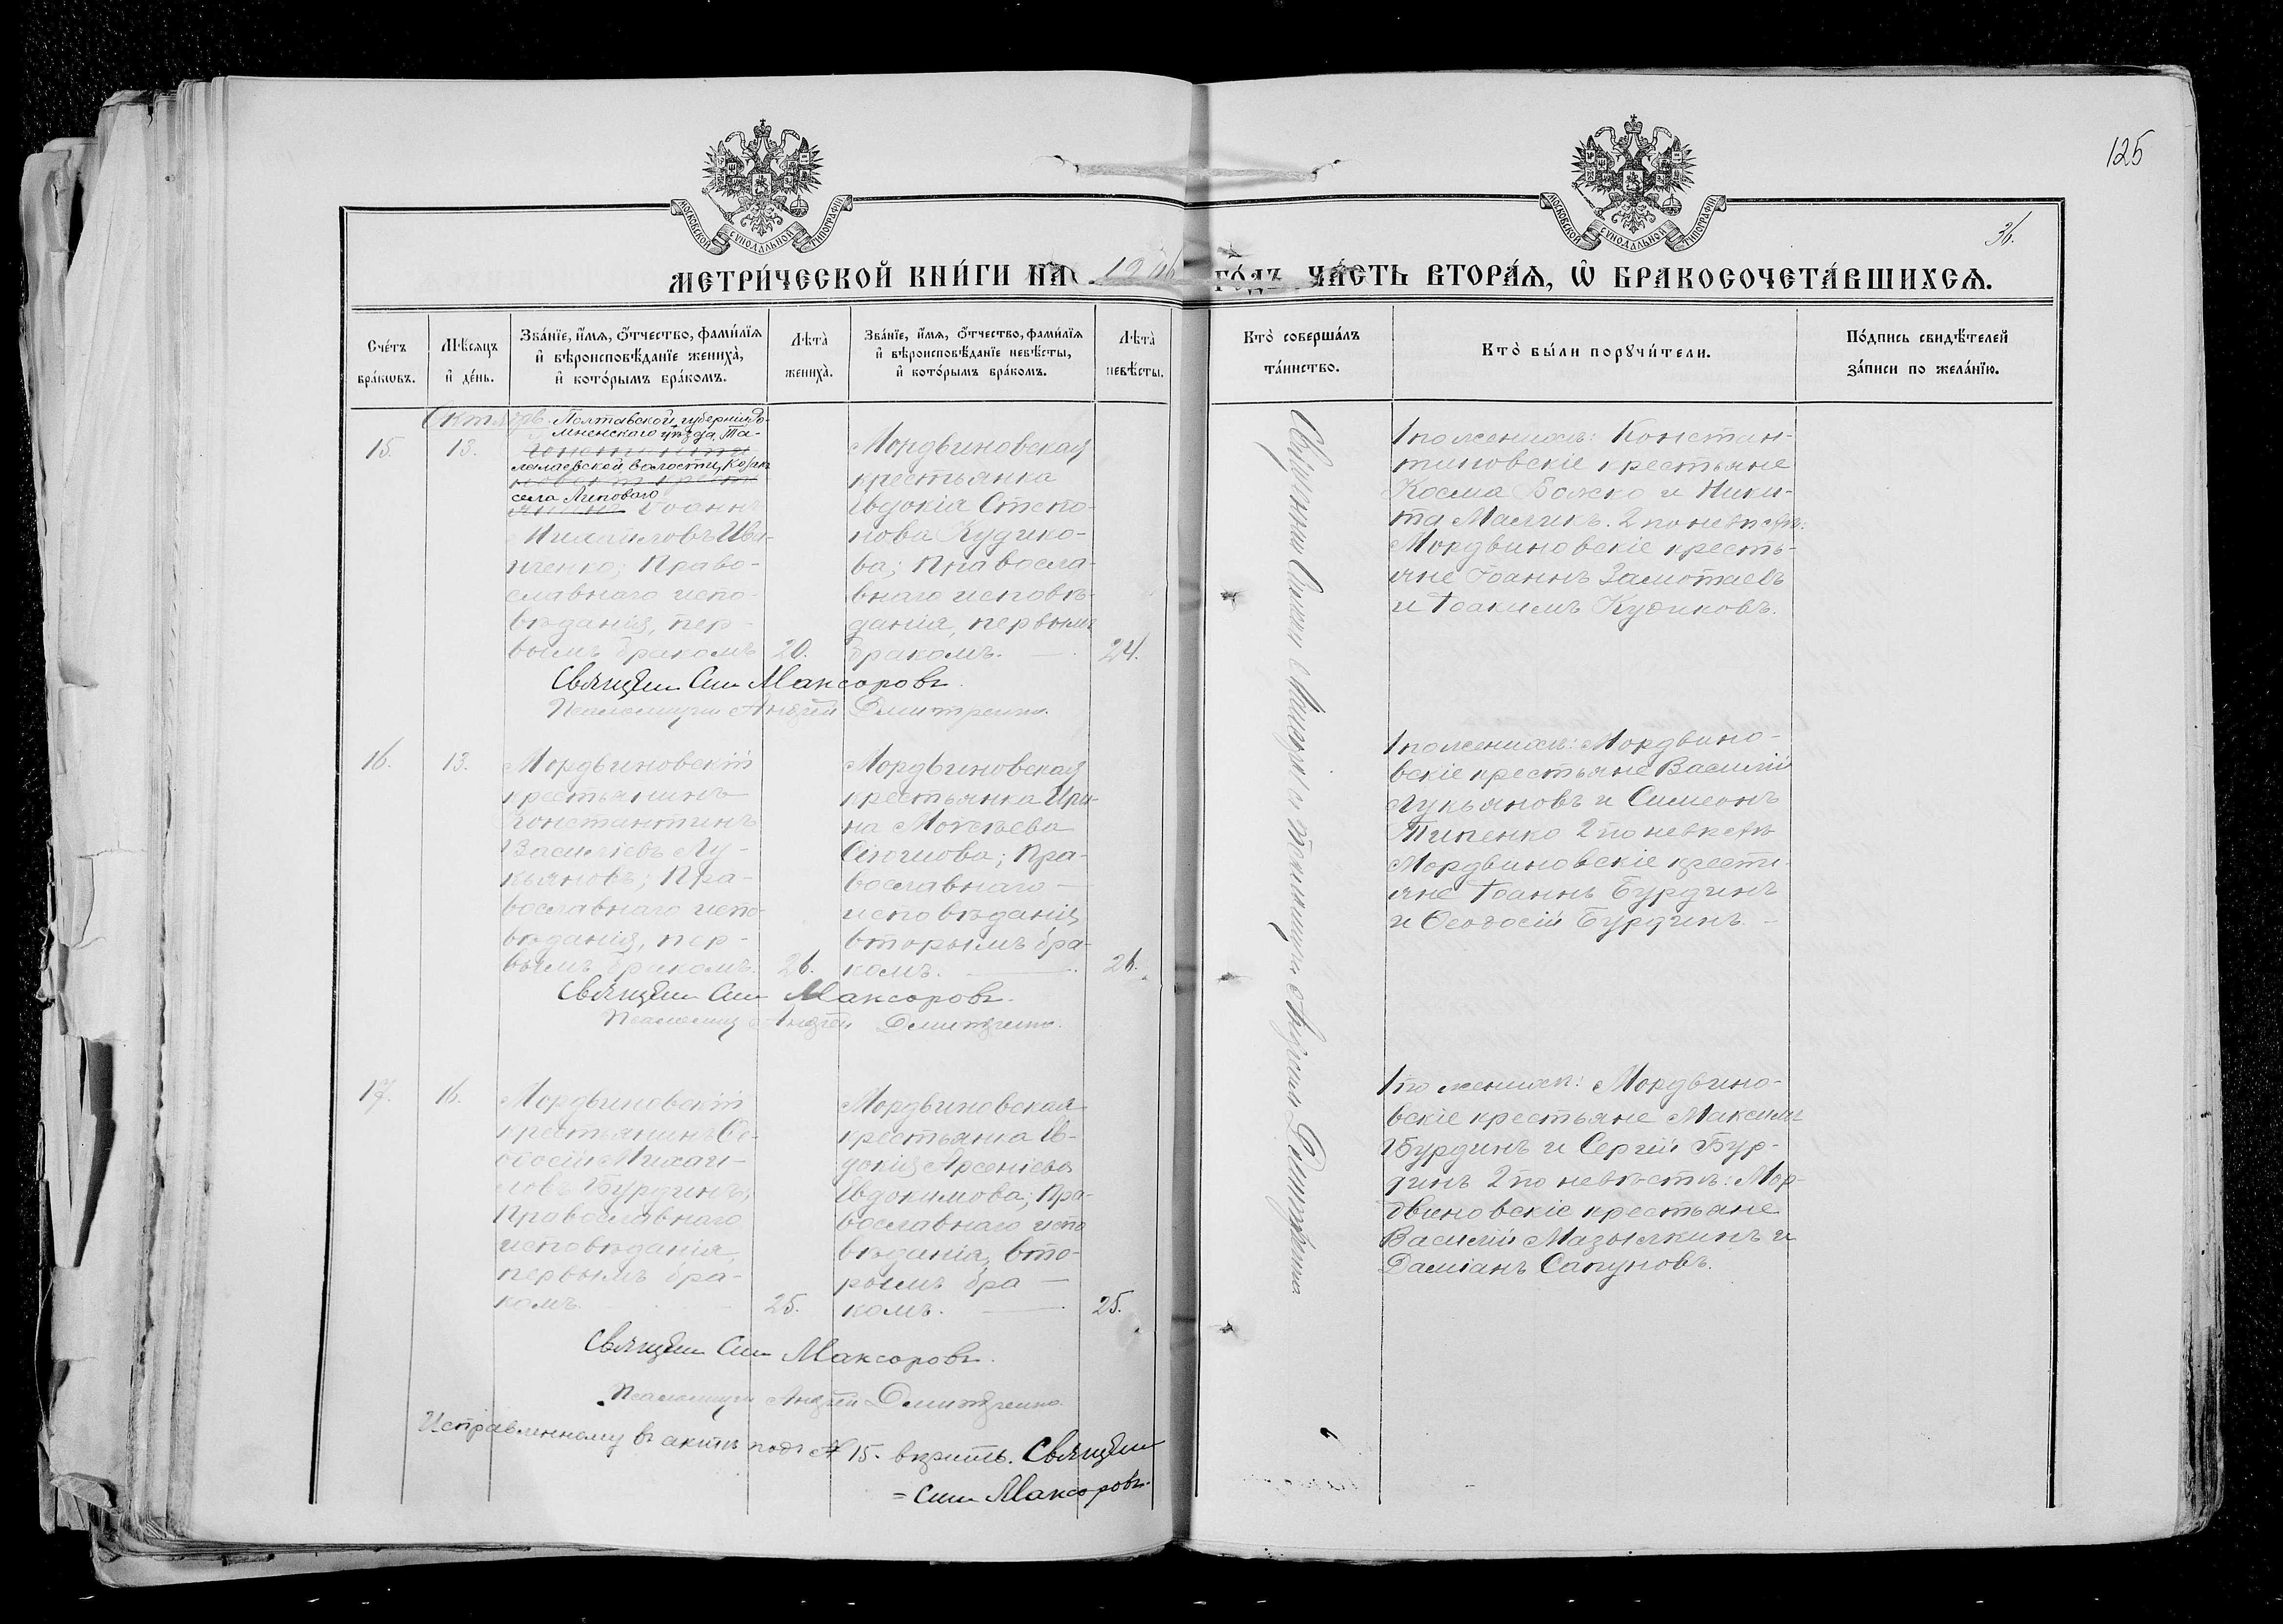 125
36.
МОСКОВСКОЙ СУНОДАЛЬНОЙ ТИПОГРАФІИ
МОСКОВСКОЙ СУНОДАЛЬНОЙ ТИПОГРАФІИ
МЕТРИ́ЧЕСКОЙ КНИ́ГИ НА 1906 ГО́ДЪ, ЧА́СТЬ ВТОРА́Ѧ, Ѽ БРАКОСОЧЕТА́ВШИХСѦ.
Сче́тъ бра́кѡвъ.
Мѣ́сяцъ и҆ де́нь.
Зва́нїе, и҆́мѧ, ѻ҆́тчество, фами́лїѧ
и҆ вѣроисповѣ́данїе жениха̀,
и҆ кото́рымъ бра́комъ.
Лѣта̀ жениха̀.
Зва́нїе, и҆́мѧ, ѻ҆́тчество, фами́лїѧ
и҆ вѣроисповѣ́данїе невѣ́сты,
и҆ кото́рымъ бра́комъ.
Лѣта̀ невѣ́сты.
Кто̀ соверша́лъ та́инство.
Кто̀ бы́ли порꙋчи́тели.
По́дпись свидѣ́телей
за́писи по жела́нїю.
Октябрь
15.
13.
Полтавской губерніи Ро-
мненскаго уѣзда, Та-
лалаевской волости, Козакъ
села Липоваго
Іоаннъ
Михайловъ Ива-
щенко; Право-
славнаго испо-
вѣданія, пер-
вымъ бракомъ
20.
Мордвиновская
крестьянка
Евдокія Степа-
нова Кудико-
ва; Правосла-
внаго исповѣ-
данія, первымъ
бракомъ.
24.
1 по женихѣ: Констан-
тиновскіе крестьяне
Косма Божко и Ники-
та Малик. 2 по невѣстѣ:
Мордвиновскіе кресть-
яне Іоаннъ Замотаевъ
и Іоакимъ Кудиковъ.
Священ. Сим. Максоровъ.
Псаломщик Андрей Дмитренко.
16.
13.
Мордвиновскій
крестьянинъ
Константинъ
Василіевъ Лу-
кьяновъ; Пра-
вославнаго испо-
вѣданія, пер-
вымъ бракомъ.
26.
Мордвиновская
крестьянка Ири-
на Мокѣева
Пра-
вославнаго
исповѣданія
вторымъ бра-
комъ.
26.
1 по женихѣ: Мордвино-
вскіе крестьяне Василій
Лукьяновъ и Симеонъ
Типенко 2 по невѣстѣ
Мордвиновскіе кресть-
яне Іоаннъ Бурдинъ
и Ѳеодосій Бурдинъ.
Священ. Сим. Максоровъ.
Псаломщ. Андрей Дмитренко.
17.
16.
Мордвиновскій
крестьянинъ Ѳе-
одосій Михаи-
ловъ Бурдинъ,
Православнаго
исповѣданія,
первымъ бра-
комъ.
25.
Мордвиновская
крестьянка Ев-
докія Арсеніева
Евдокимова; Пра-
вославнаго испо
вѣданія, вто-
рымъ бра-
комъ.
25.
1 по женихѣ: Мордвино-
вскіе крестьяне Максимъ
Бурдинъ и Сергій Бур-
динъ 2 по невѣстѣ: Мор-
двиновскіе крестьяне
Василій Мазылкинъ и
Даміанъ Сапуновъ.
Священ. Сим. Максоровъ.
Псаломщик Андрей Дмитренко.
Исправленному въ актѣ подъ № 15. вѣрить. Священ
= Сим. Максоровъ.